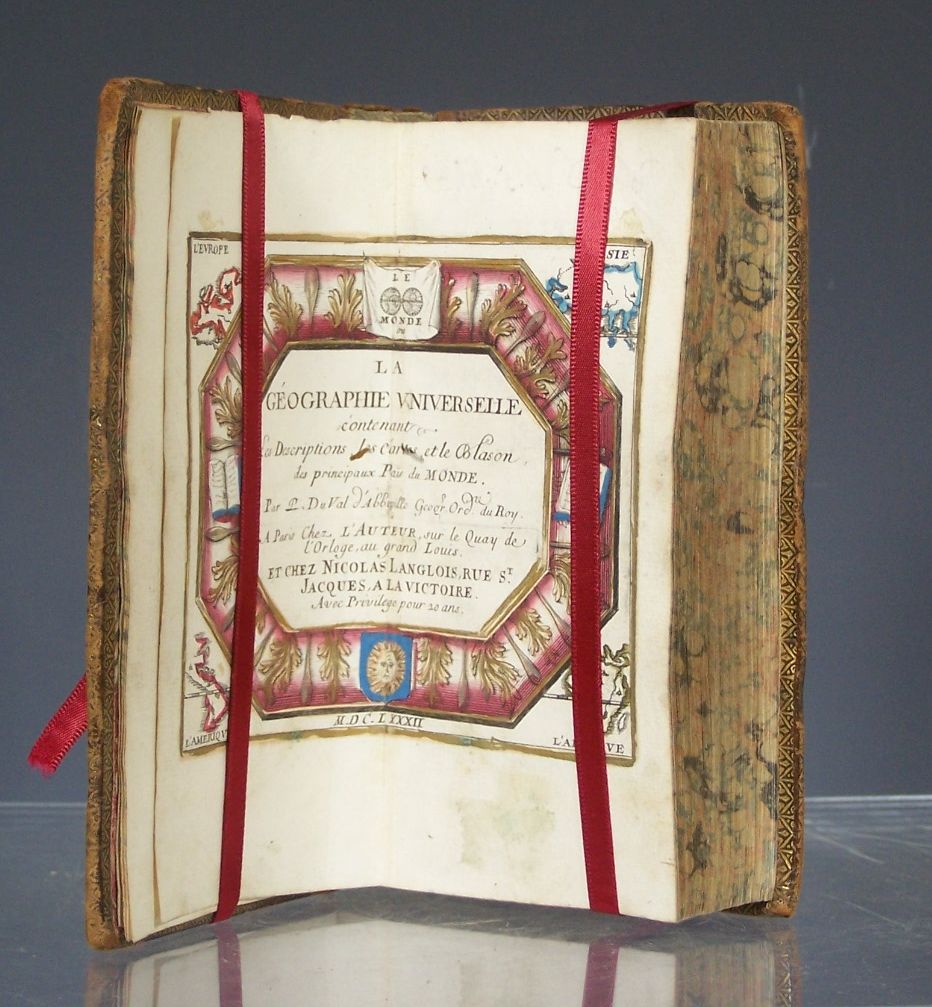 L'EVROPE
SIE
LE
MONDE
ou
LA
GÉOGRAPHIE VNIVERSELLE
contenant
Les Descriptions les Cartes et le Blason
des principaux Païs du MONDE.
Par P. Du Val d'Abbeville Geogr. Ordre. du Roy.
A Paris Chez L'AUTEUR, sur le Quay de
l'Orloge, au grand Louis.
ET CHEZ NICOLAS LANGLOIS, RUE St.
JACQUES, A LA VICTOIRE.
Avec Privilege pour 20 ans.
M.DC.LXXXII
L'AMERIQV
L'A VE